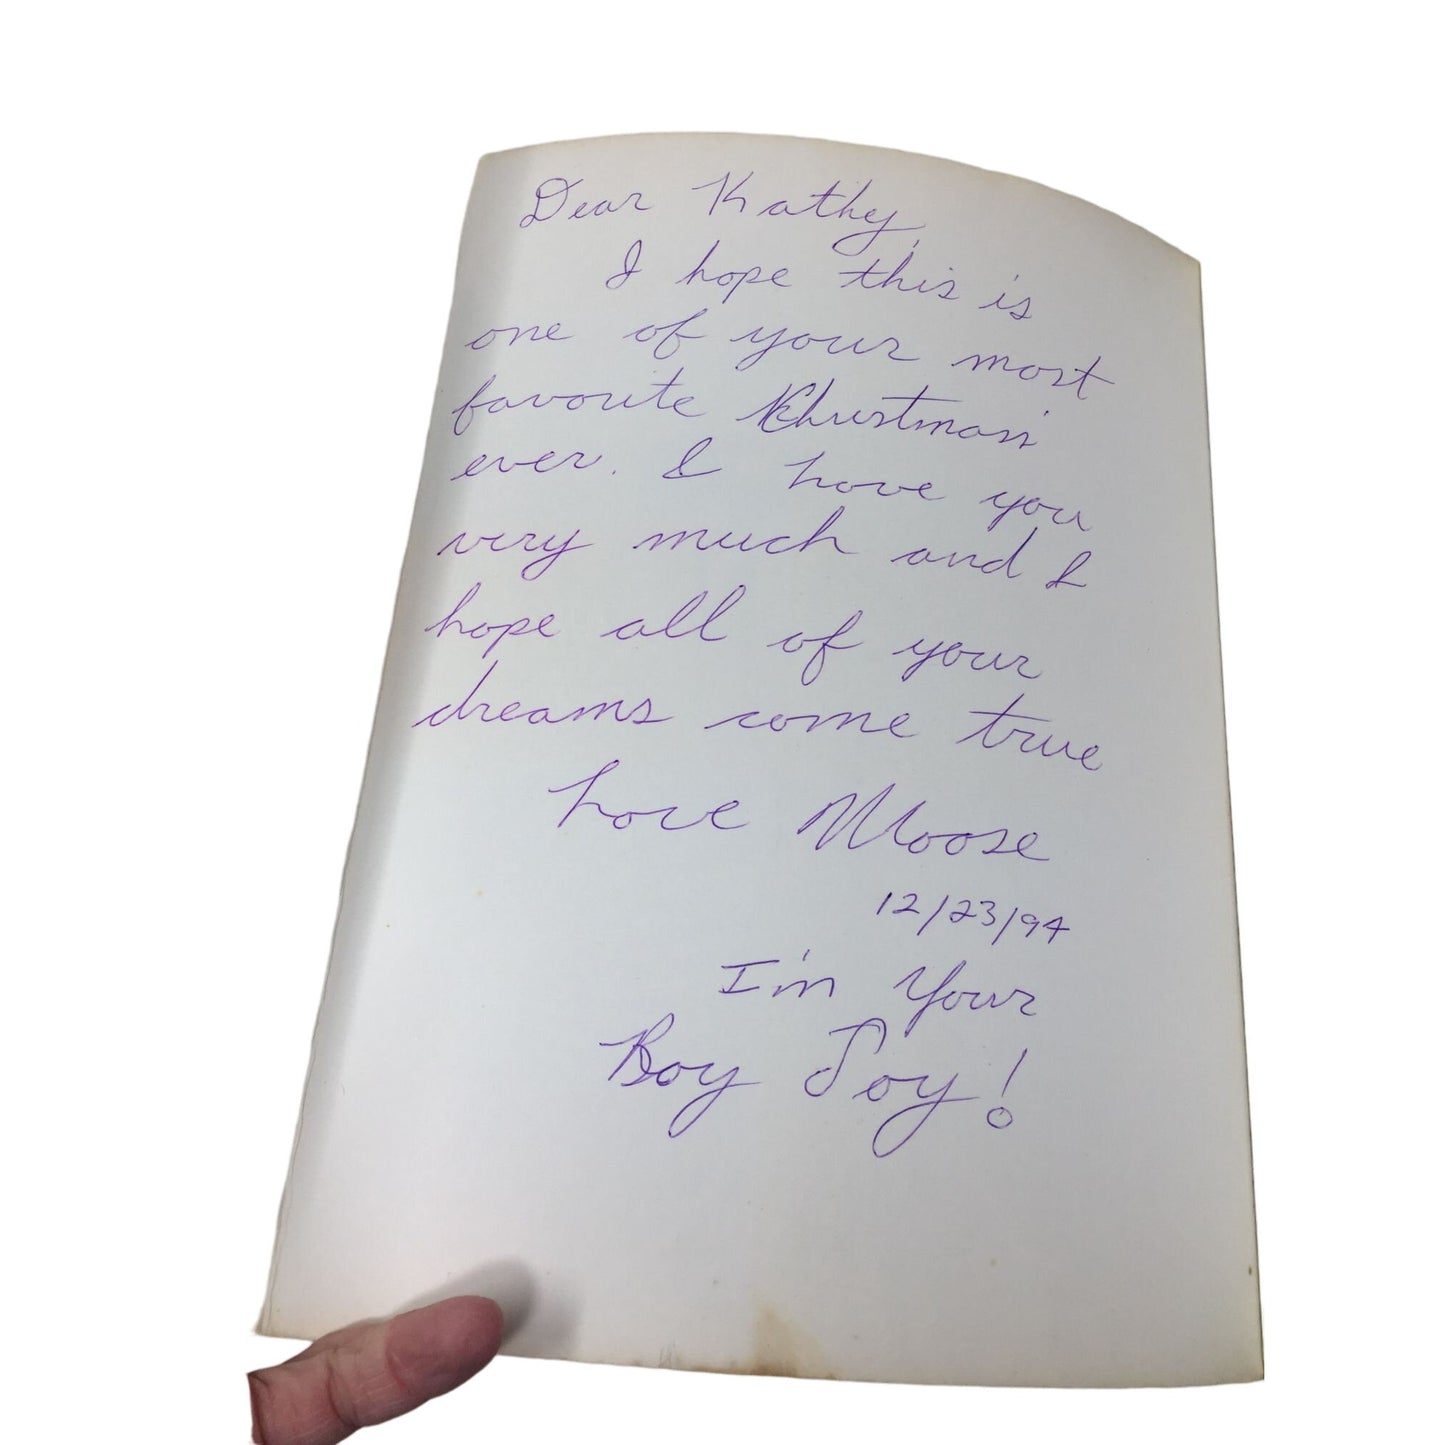 Dear Kathy,
I hope this is
one of your most
favorite Christmas
ever. I love you
very much and I
hope all of your
dreams come true
Love Moose
12/23/94
I'm Your
Boy Toy!